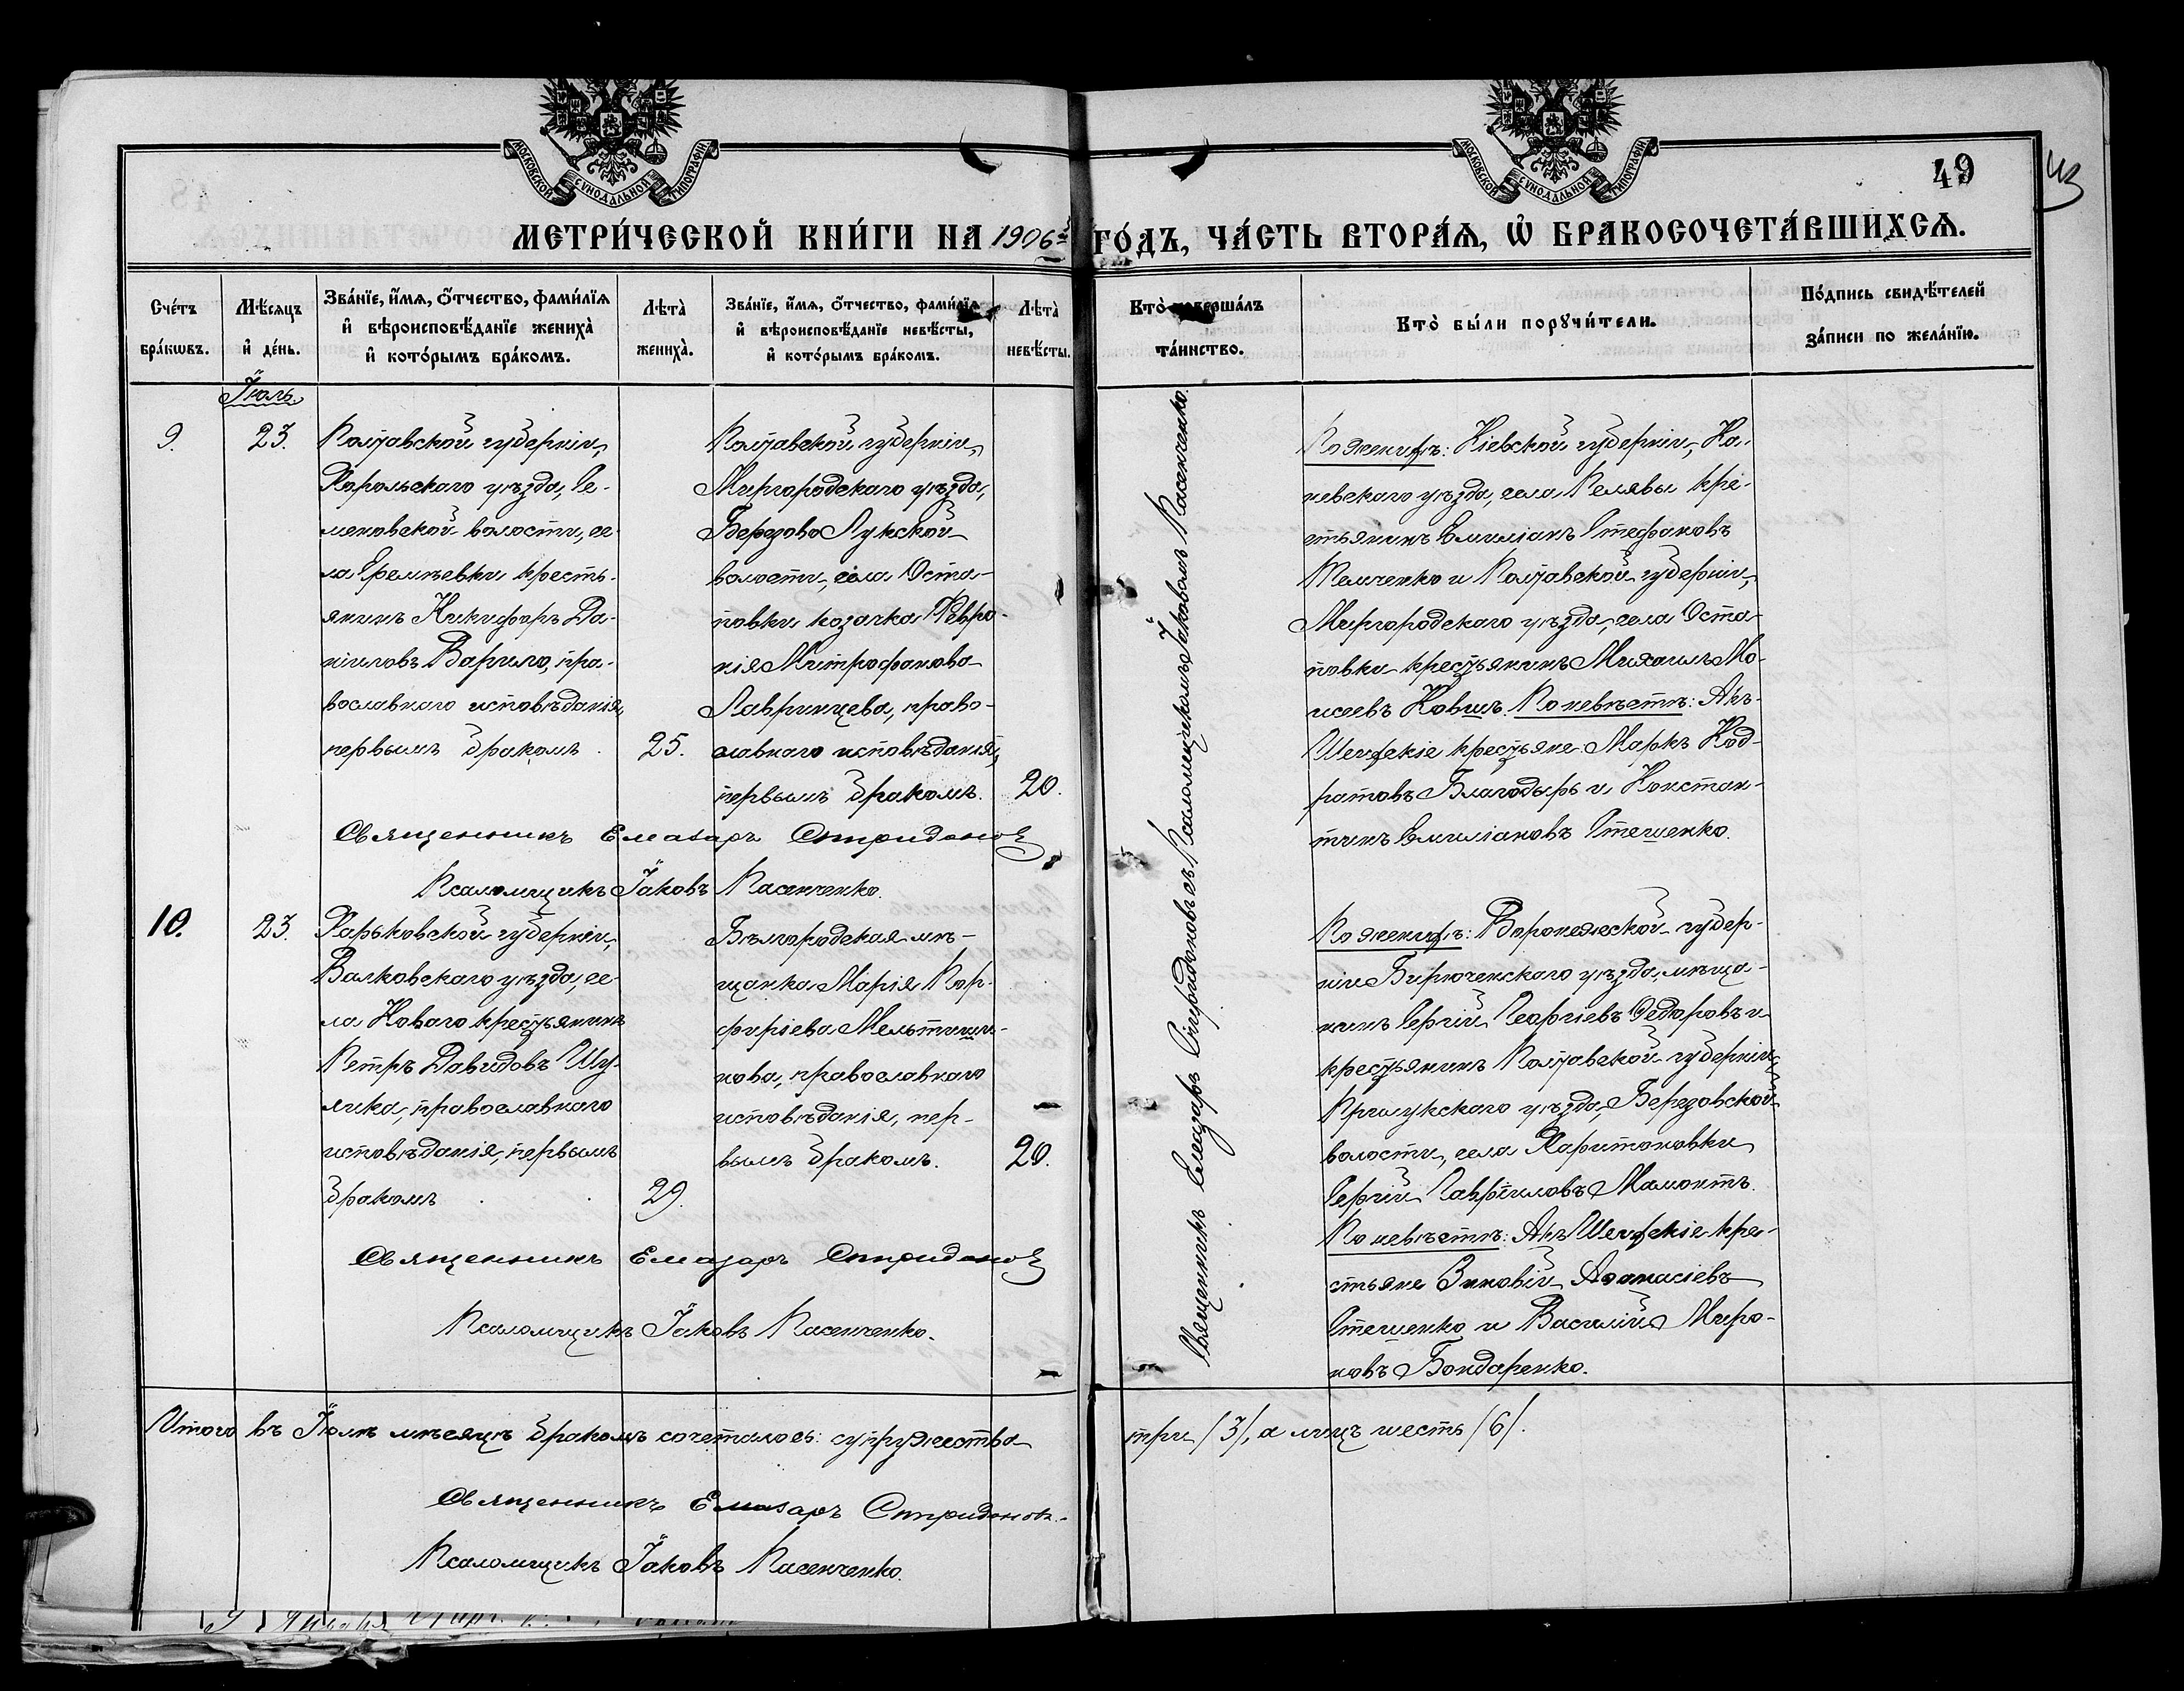 МОСКОВСКОЙ СѴНОДАЛЬНОЙ ТИПОГРАФІИ
МОСКОВСКОЙ СѴНОДАЛЬНОЙ ТИПОГРАФІИ
49
МЕТРИ́ЧЕСКОЙ КНИ́ГИ НА 1906й ГО́ДЪ, ЧА́СТЬ ВТОРА́Ѧ, Ѡ҆ БРАКОСОЧЕТА́ВШИХСѦ.
Сче́тъ
бра́кѡвъ.
Мѣ́сѧцъ
и҆ де́нь.
Зва́нїе, и҆́мѧ, ѻ҆́тчество, фами́лїѧ
и҆ вѣроисповѣ́данїе жениха̀
и҆ кото́рымъ бра́комъ.
Лѣта̀
жениха̀.
Зва́нїе, и҆́мѧ, ѻ҆́тчество, фами́лїѧ
и҆ вѣроисповѣ́данїе невѣ́сты,
и҆ кото́рымъ бра́комъ.
Лѣта̀
невѣ́сты.
Кто̀ соверша́лъ
та́инство.
Кто̀ бы́ли порꙋчи́тели.
По́дпись свидѣ́телей
за́писи по жела́нїю.
Іюль.
9.
23.
Полтавской губерніи,
Хорольскаго уѣзда, Се-
меновской волости, се-
ла Еремѣевки кресть-
янинъ Никифоръ Да-
ніиловъ Варило, пра-
вославнаго исповѣданія,
первымъ бракомъ.
25.
Полтавской губерніи,
Миргородскаго уѣзда,
Березово Лукской
волости, села Оста-
повки козачка Февро-
нія Митрофанова
Лавринцева, право-
славнаго исповѣданія,
первымъ бракомъ.
20.
По женихѣ: Кіевской губерніи, Ка-
невскаго уѣзда, села Пелявы кре-
стьянинъ Емиліанъ Стефановъ
Темченко и Полтавской губерніи,
Миргородскаго уѣзда, села Оста-
повки крестьянинъ Михаилъ Мо-
исеевъ Ковшъ. По невѣстѣ: Акъ-
Шеихскіе крестьяне Маркъ Код-
ратовъ Благодырь и Констан-
тинъ Емиліановъ Стешенко.
Священникъ Елеазаръ Спиридоновъ
Псаломщикъ Іаковъ Пасенченко.
10.
23.
Харьковской губерніи,
Валковскаго уѣзда, се-
ла Новаго крестьянинъ
Петръ Давидовъ Шу-
лика, православнаго
исповѣданія, первымъ
бракомъ
29.
Бѣлгородская мѣ-
щанка Марія Пор-
фиріева Мельтиши-
нова, православнаго
исповѣданія, пер-
вымъ бракомъ.
20.
Священникъ Елеазаръ Спиридоновъ съ Псаломщикомъ Іаковомъ Пасенченко.
По женихѣ: Воронежской губер-
ніи Бирюченскаго уѣзда, мѣща-
нинъ Сергій Георгіевъ Ѳедоровъ и
крестьянинъ Полтавской губерніи,
Прилукскаго уѣзда, Березовской
волости, села Харитоновки
Сергій Гавріиловъ Мамонтъ.
По невѣстѣ: Акъ Шеихскіе кре-
стьяне Зиновій Аѳанасіевъ
Стешенко и Василій Миро-
новъ Бондаренко.
Священникъ Елеазаръ Спиридоновъ
Псаломщикъ Іаковъ Пасенченко.
Итого въ Іюлѣ мѣсяцѣ бракомъ сочеталось: супружества три /3/, а лицъ шесть /6/.
Священникъ Елеазаръ Спиридоновъ.
Псаломщикъ Іаковъ Пасенченко.